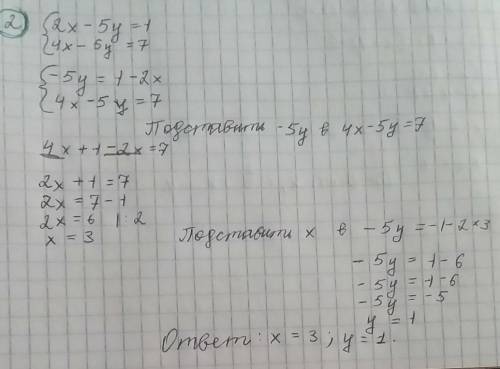 2
2x - 5y = 1
4x - 6y = 7
-5y = 1 - 2x
4x - 5y = 7
Подставити -5y в 4x-5y=7
4x + 1 = 2x = 7
2x + 1 = 7
2x = 7 - 1
2x = 6 | : 2
x = 3
Подставити x в -5y = -1 - 2×3
-5y = 1 - 6
-5y = 1 - 6
-5y = -5
y = 1
Ответ: x = 3 ; y = 1.